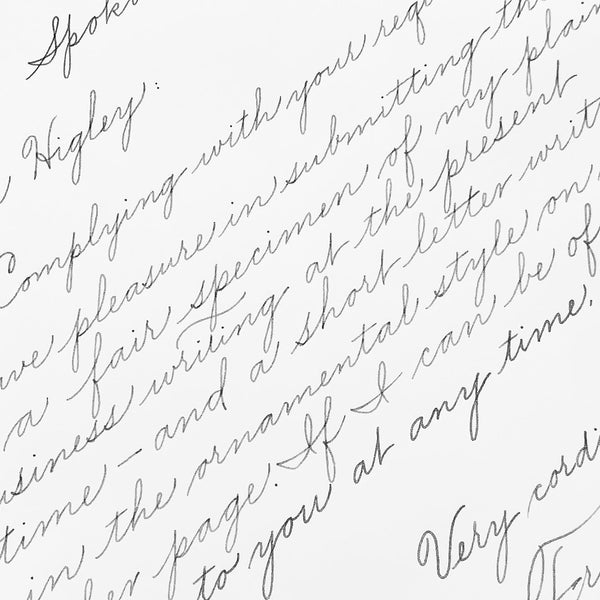 Spok
Higley:
Complying with your requ
ve pleasure in submitting th
a fair specimen of my plain
usiness writing at the present
time – and a short letter writt
in the ornamental style on
er page. If I can be of
to you at any time.
Very cordi
Fr